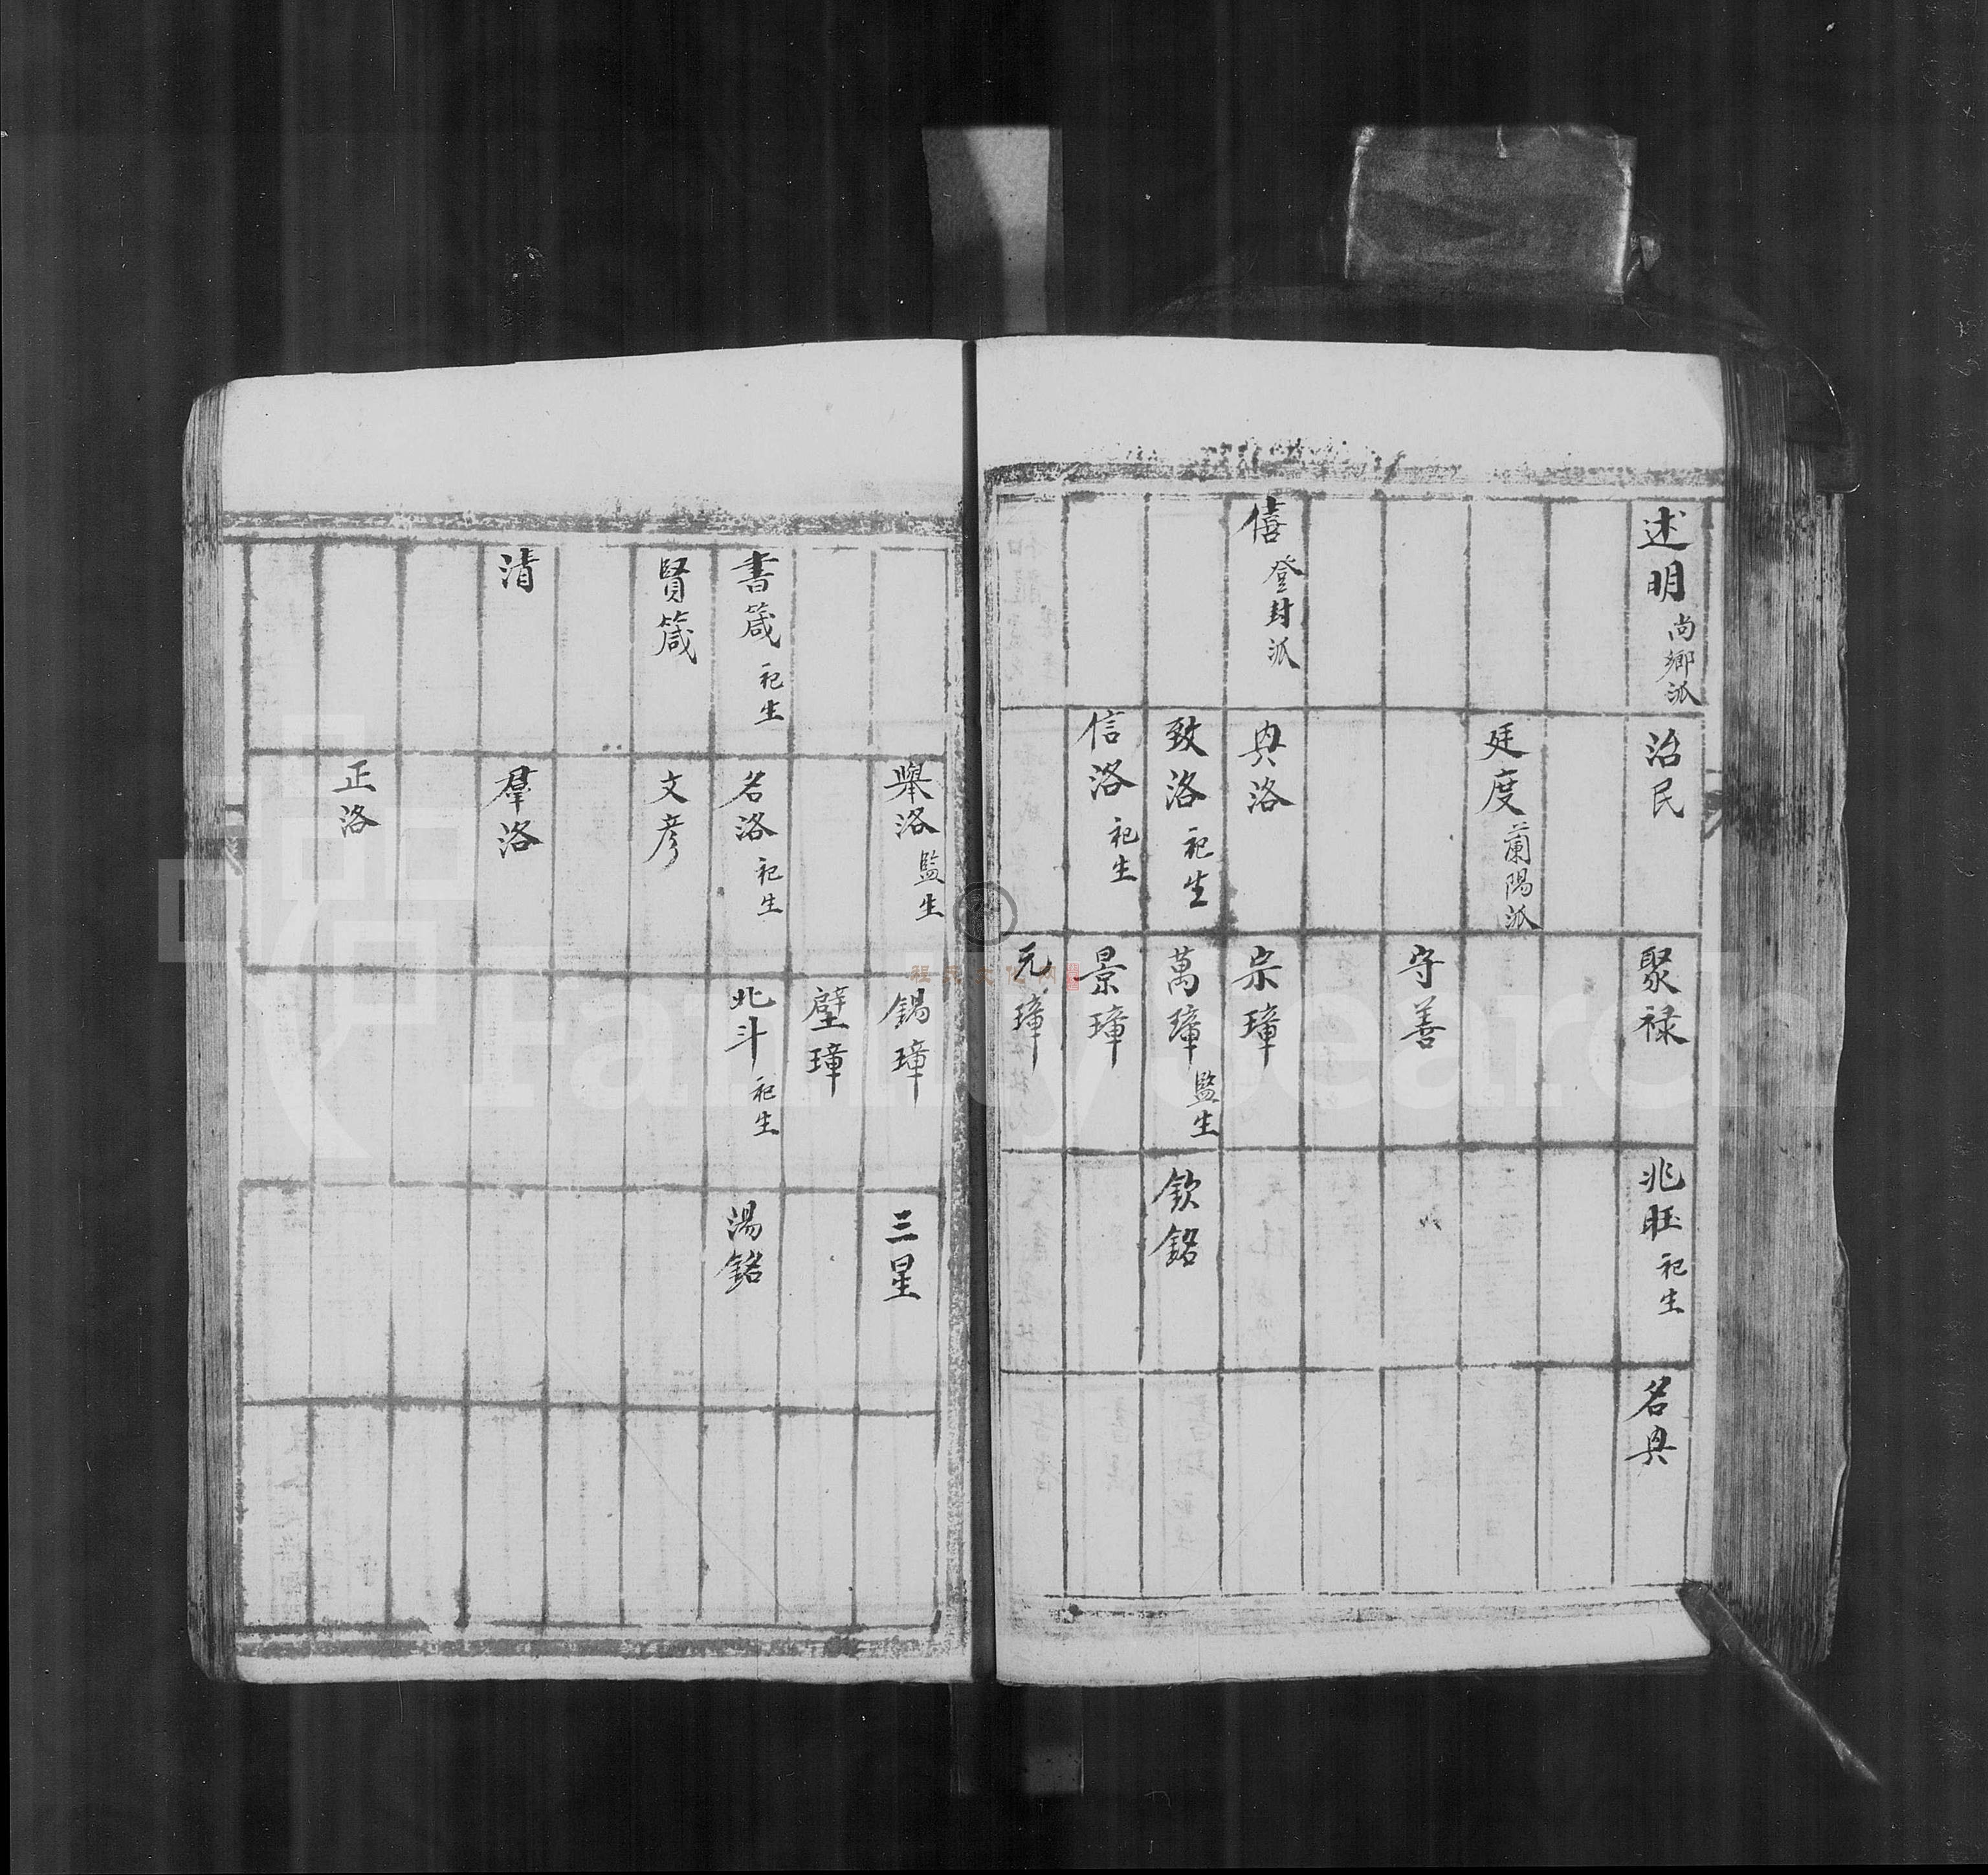 述明 尚鄉派
治民
聚禄
兆旺 祀生
名典
廷度 蘭陽派
守善
僖 登封派
典洛
宗璋
致洛 祀生
萬璋 監生
欽銘
信洛 祀生
景璋
元璋
舉洛 監生
錫璋
三星
壁璋
書箴 祀生
名洛 祀生
北斗 祀生
湯銘
賢箴
文彦
清
羣洛
正洛
FamilySearch